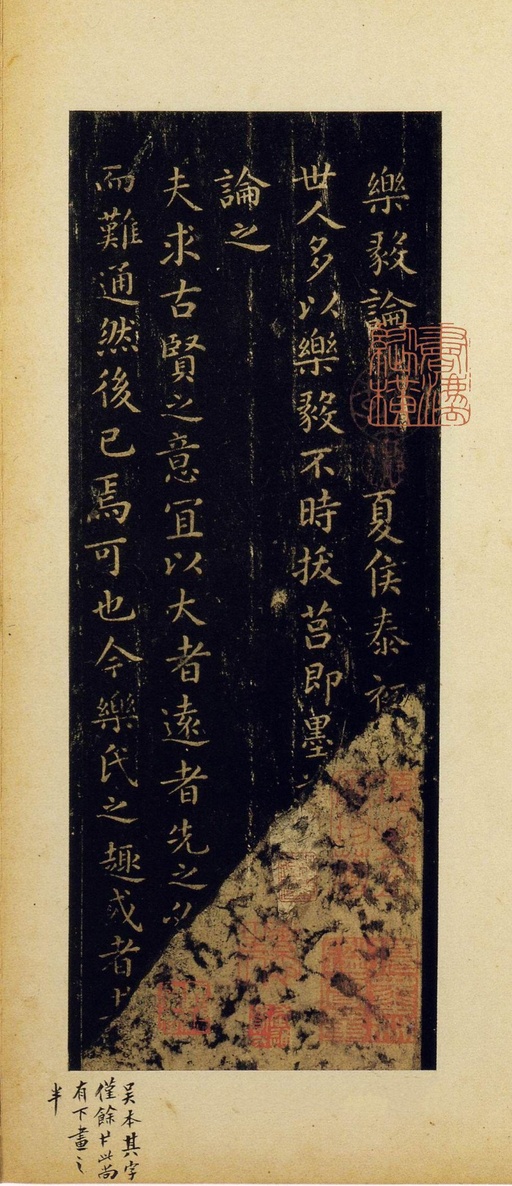 樂毅論 夏侯泰初
世人多以樂毅不時拔莒即墨
論之
夫求古賢之意宜以大者遠者先之必
而難通然後已焉可也今樂氏之趣或者
吴本其字
僅餘廿此尚
有下畫之
半